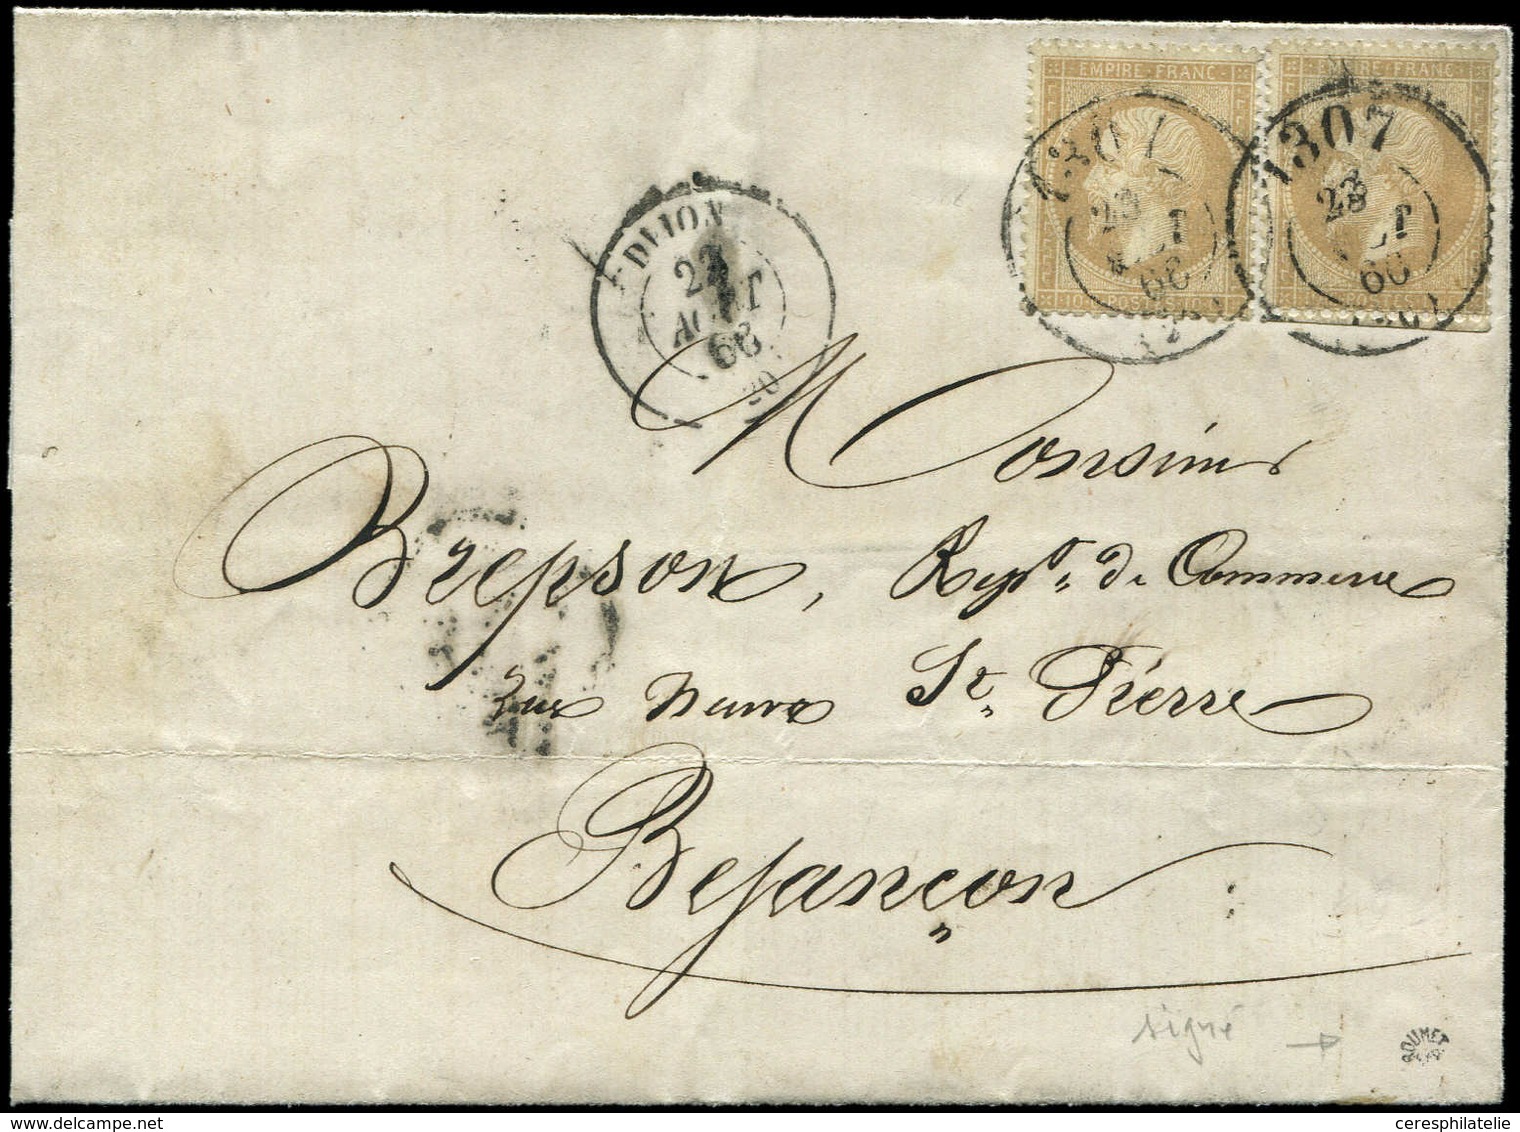 EMPIRE FRANC
EMPIRE FRANC
1307
23
68
10 POSTES 10
1307
23
POSTES
DIJON
22
AOUT
68
Monsieur
Brepson, Repnt. de Commerce
Rue Neuve St. Pierre
Besançon
signé
ROUMET
delcampe.net
ceresphilatelie